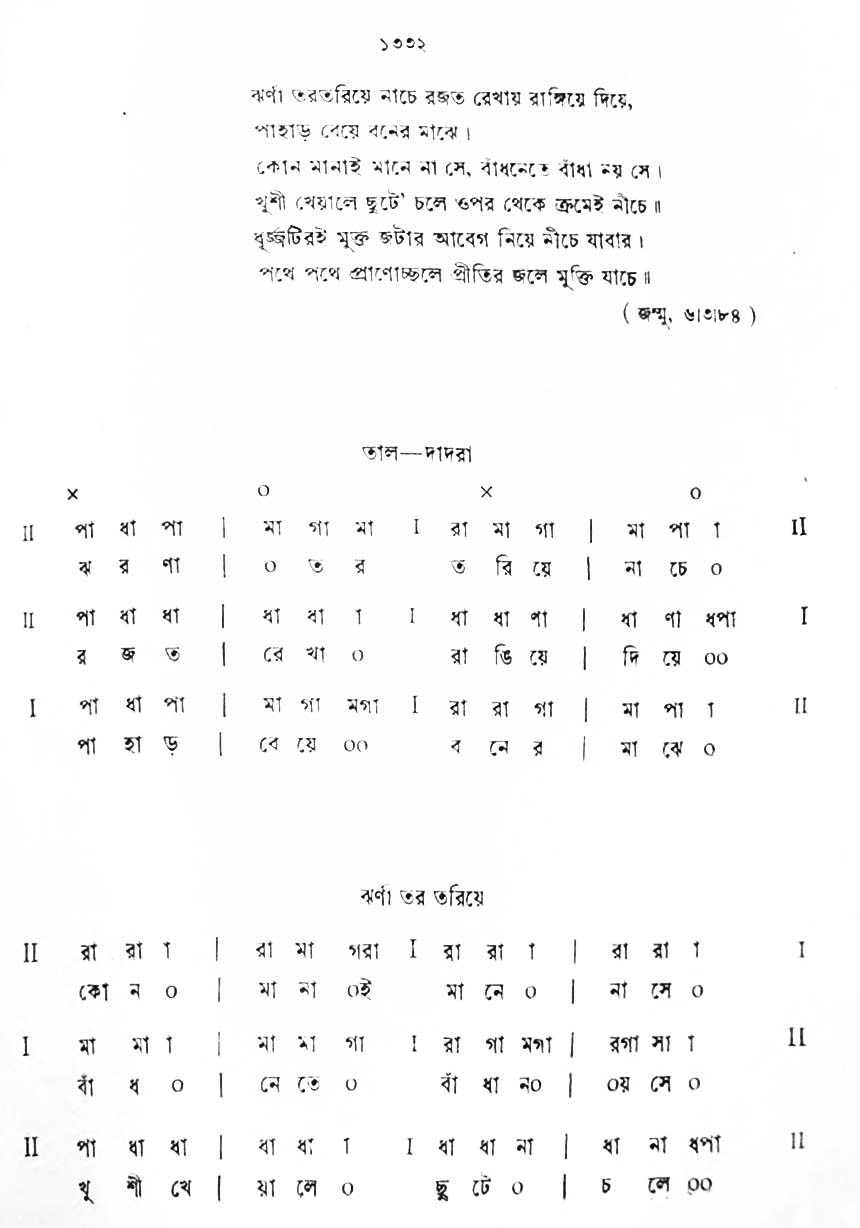 ১৩৩২
ঝর্ণা তরতরিয়ে নাচে রজত রেখায় রাঙ্গিয়ে দিয়ে,
পাহাড় বেয়ে বনের মাঝে।
কোন মানাই মানে না সে, বাঁধনেতে বাঁধা নয় সে।
খুশী খেয়ালে ছুটে' চলে ওপর থেকে ক্রমেই নীচে॥
ধূর্জ্জটিরই মুক্ত জটার আবেগ নিয়ে নীচে যাবার।
পথে পথে প্রাণোচ্ছলে প্রীতির জলে মুক্তি যাচে॥
( জম্মু, ৬।৩।৮৪ )
তাল—দাদরা
× ০ × ০
II পা ধা পা | মা গা মা I রা মা গা | মা পা া II
ঝ র ণা | ০ ত র ত রি য়ে | না চে ০
II পা ধা ধা | ধা ধা া I ধা ধা ণা | ধা ণা ধপা I
র জ ত | রে খা ০ রা ঙি য়ে | দি য়ে ০০
I পা ধা পা | মা গা মগা I রা রা গা | মা পা া II
পা হা ড় | বে য়ে ০০ ব নে র | মা ঝে ০
ঝর্ণা তর তরিয়ে
II রা রা া | রা মা গরা I রা রা া | রা রা া I
কো ন ০ | মা না ০ই মা নে ০ | না সে ০
I মা মা া | মা মা গা I রা গা মগা | রগা সা া II
বাঁ ধ ০ | নে তে ০ বাঁ ধা ন০ | ০য় সে ০
II পা ধা ধা | ধা ধা া I ধা ধা না | ধা না ধপা II
খু শী খে | য়া লে ০ ছু টে ০ | চ লে ০০